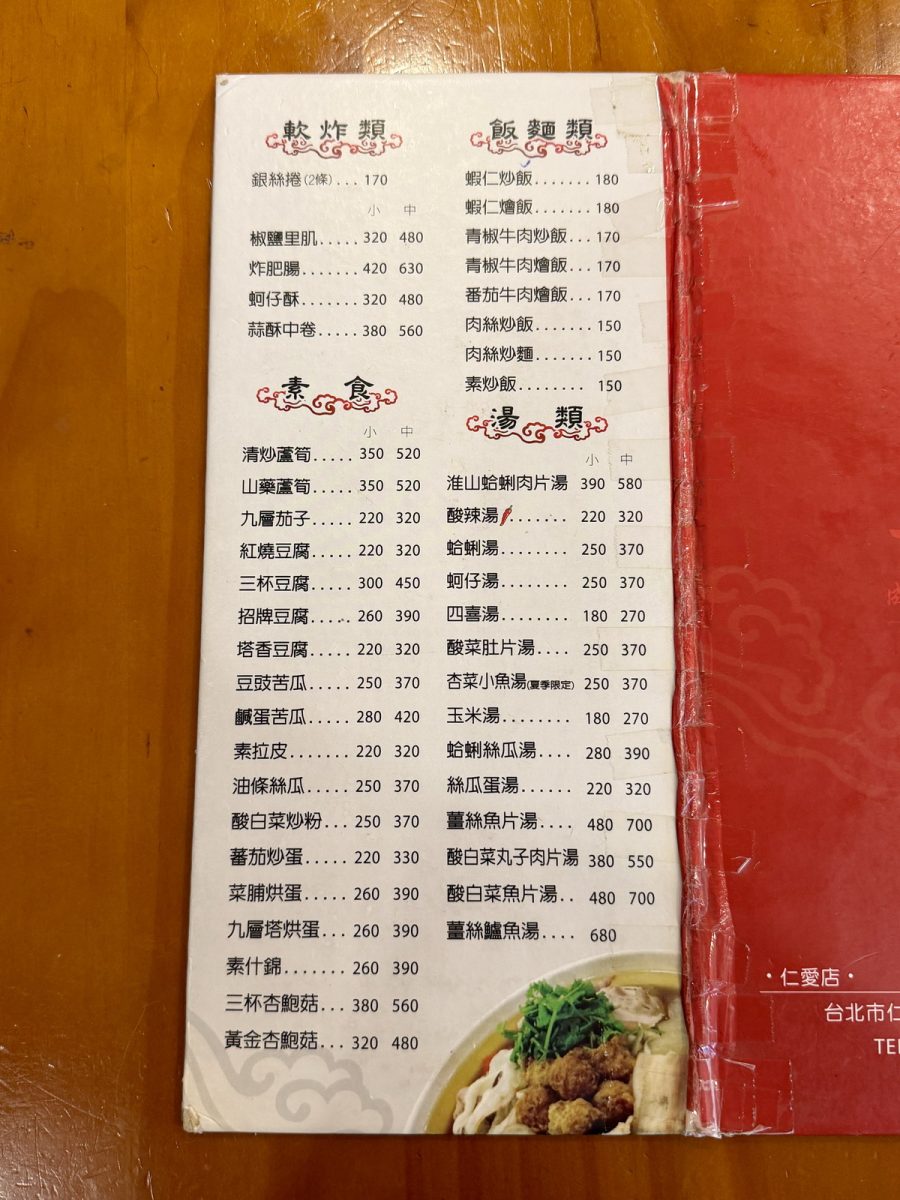 軟炸類
銀絲捲(2條)... 170
小 中
椒鹽里肌..... 320 480
炸肥腸....... 420 630
蚵仔酥....... 320 480
蒜酥中卷..... 380 560
素 食
小 中
清炒蘆筍..... 350 520
山藥蘆筍..... 350 520
九層茄子..... 220 320
紅燒豆腐..... 220 320
三杯豆腐..... 300 450
招牌豆腐..... 260 390
塔香豆腐..... 220 320
豆豉苦瓜..... 250 370
鹹蛋苦瓜..... 280 420
素拉皮....... 220 320
油條絲瓜..... 250 370
酸白菜炒粉... 250 370
蕃茄炒蛋..... 220 330
菜脯烘蛋..... 260 390
九層塔烘蛋... 260 390
素什錦....... 260 390
三杯杏鮑菇... 380 560
黃金杏鮑菇... 320 480
飯麵類
蝦仁炒飯....... 180
蝦仁燴飯....... 180
青椒牛肉炒飯... 170
青椒牛肉燴飯... 170
番茄牛肉燴飯... 170
肉絲炒飯....... 150
肉絲炒麵....... 150
素炒飯........ 150
湯 類
小 中
淮山蛤蜊肉片湯 390 580
酸辣湯....... 220 320
蛤蜊湯........ 250 370
蚵仔湯........ 250 370
四喜湯........ 180 270
酸菜肚片湯.... 250 370
杏菜小魚湯(夏季限定) 250 370
玉米湯........ 180 270
蛤蜊絲瓜湯.... 280 390
絲瓜蛋湯...... 220 320
薑絲魚片湯.... 480 700
酸白菜丸子肉片湯 380 550
酸白菜魚片湯.. 480 700
薑絲鱸魚湯.... 680
·仁愛店·
台北市仁
TEL